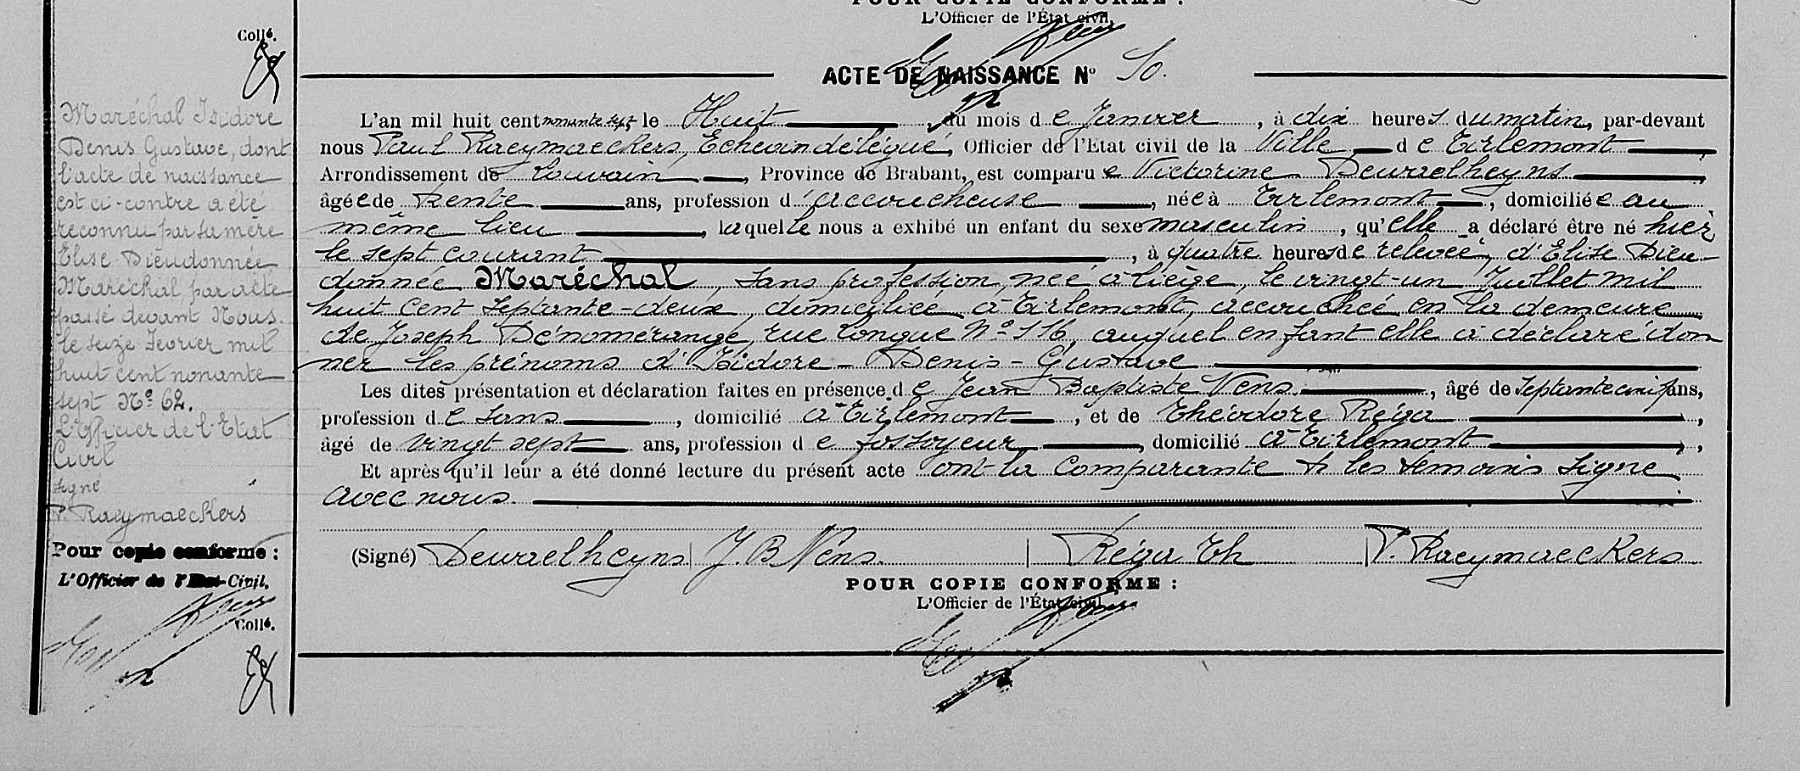 POUR COPIE CONFORME :
L'Officier de l'État civil,
Collé.
ACTE DE NAISSANCE N° 10.
Maréchal Isidore
Denis Gustave, dont
l'acte de naissance
est ci-contre a été
reconnu par sa mère
Elise Dieudonnée
Maréchal par acte
passé devant Nous.
le seize Février mil
huit cent nonante
sept N° 62.
L'Officier de l'Etat
Civil
signé
P. Raeymaeckers
Pour copie conforme :
L'Officier de l'Etat-Civil,
Collé.
L'an mil huit cent nonante sept le Huit du mois de Janvier, à dix heures du matin, par-devant
nous Paul Raeymaeckers, Echevin délégué, Officier de l'Etat civil de la Ville de Tirlemont
Arrondissement de Louvain, Province de Brabant, est comparue Victorine Dewaelheyns
âgée de trente ans, profession d'accoucheuse, née à Tirlemont, domiciliée au
même lieu, laquelle nous a exhibé un enfant du sexe masculin, qu'elle a déclaré être né hier
le sept courant, à quatre heures de relevée, d'Elise Dieu-
donnée Maréchal, sans profession, née à Liège, le vingt-un Juillet mil
huit cent septante-deux, domiciliée à Tirlemont, accouchée en la demeure
de Joseph Dénomérange, rue Longue N° 116, auquel enfant elle a déclaré don
ner les prénoms d'Isidore - Denis - Gustave
Les dites présentation et déclaration faites en présence de Jean Baptiste Nens, âgé de septante cinq ans,
profession de sans, domicilié à Tirlemont, et de Théodore Réga,
âgé de vingt sept ans, profession de fossoyeur, domicilié à Tirlemont,
Et après qu'il leur a été donné lecture du présent acte ont la comparante & les témoins signé
avec nous.
(Signé) Dewaelheyns | J. B. Nens. | Réga Th | P. Raeymaeckers
POUR COPIE CONFORME :
L'Officier de l'État civil,